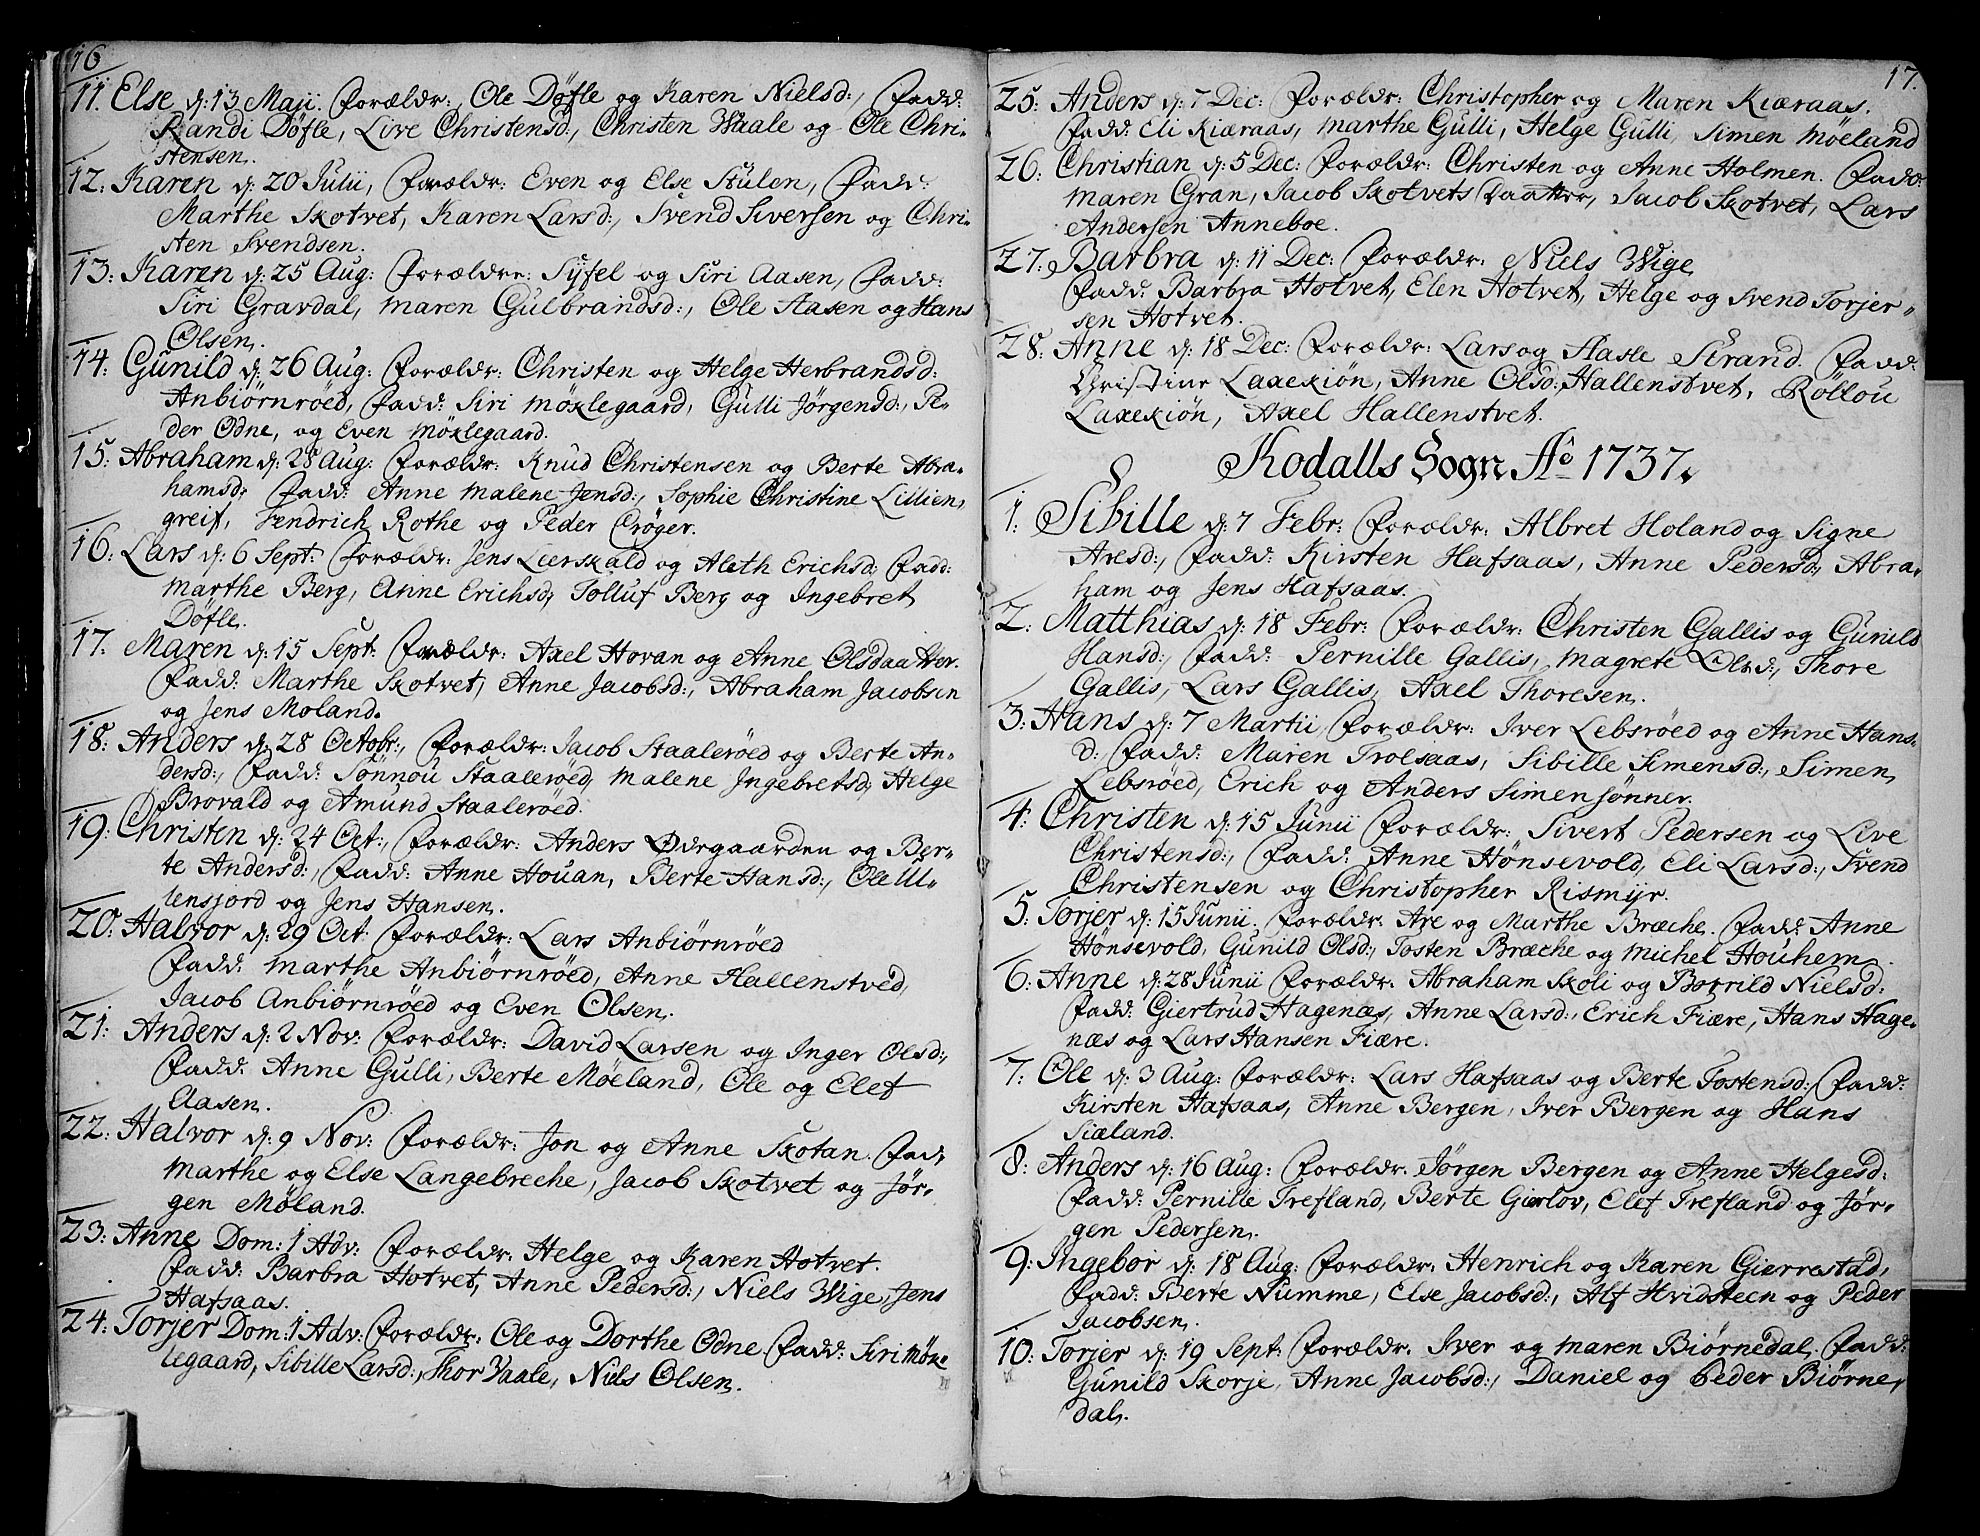 16
11. Else d: 13 Maji. Forældr: Ole Døfle og Karen Nielsd:, Fadd:
Randi Døfle, Live Christensd:, Christen Waale og Ole Chri-
stensen.
12. Karen d: 20 Julii, Forældr: Even og Else Stulen, Fadd:
Marthe Skotvet, Karen Larsd:, Svend Siversen og Chri-
sten Svendsen.
13. Karen d: 25 Aug: Forældre: Syfel og Siri Aasen, Fadd:
Siri Gravdal, Maren Gulbrandsd:, Ole Aasen og Hans
Olsen.
14. Gunild d: 26 Aug: Forældr: Christen og Helge Herbrandsd:
Anbiørnrøed, Fadd: Siri Møklegaard, Gulli Jørgensd:, Pe-
der Odne, og Even Møklegaard.
15. Abraham d: 28 Aug: Forældr: Knud Christensen og Berte Abra-
hamsd: Fadd: Anne Malene Jensd:, Sophie Christine Lillien-
greif, Fendrich Rothe og Peder Crøger.
16. Lars d: 6 Sept: Forældr: Jens Lierskald og Aleth Erichsd: Fadd:
Marthe Berg, Anne Erichsd: Tolluf Berg og Ingebret
Døfle.
17. Maren d: 15 Sept: Forældr: Axel Hovan og Anne Olsdaatter.
Fadd: Marthe Skotvet, Anne Jacobsd:, Abraham Jacobsen
og Jens Moland.
18: Anders d: 28 Octobr:, Forældr: Jacob Staalerøed og Berte An-
dersd:, Fadd: Sønnou Staalerøed, Malene Ingebretsd: Helge
Brovald og Amund Staalerøed.
19: Christen d: 24 Oct:, Forældr: Anders Ødegaarden og Ber-
te Andersd:, Fadd: Anne Houan, Berte Hansd:, Ole Ul-
lensjord og Jens Hansen.
20: Halvor d: 29 Oct: Forældr: Lars Anbiørnrøed
Fadd: Marthe Anbiørnrøed, Anne Hallenstved,
Jacob Anbiørnrøed og Even Olsen.
21: Anders d: 2 Nov: Forældr: David Larsen og Inger Olsd:,
Fadd: Anne Gulli, Berte Møeland, Ole og Elef
Aasen.
22: Halvor d: 9 Nov: Forældr: Jon og Anne Skotan. Fad:
Marthe og Else Langebreche, Jacob Skotvet og Jør-
gen Møland.
23: Anne Dom: 1 Adv: Forældr: Helge og Karen Hotvet.
Fadd: Barbra Hotvet, Anne Pedersd:, Niels Wige, Jens
Hafsaas.
24: Torjer Dom: 1 Adv: Forældr: Ole og Dorthe Odne. Fadd: Siri Møk-
legaard, Sibille Larsd:, Thor Vaale, Niels Olsen.
17.
25: Anders d: 7 Dec: Forældr: Christopher og Maren Kiæraas.
Fadd: Eli Kiæraas, Marthe Gulli, Helge Gulli, Simen Møeland
26: Christian d: 5 Dec: Forældr: Christen og Anne Holmen. Fadd:
Maren Gran, Jacob Skotvets Daatter, Jacob Skotvet, Lars
Andersen Anneboe.
27: Barbra d: 11 Dec: Forældr: Niels Wige
Fadd: Barbra Hotvet, Elen Hotvet, Helge og Svend Torjer-
sen Hotvet.
28: Anne d: 18 Dec: Forældr: Lars og Aasle Strand. Fadd:
Christine Laxekiøn, Anne Olsd: Hallenstvet, Rollou
Laxekiøn, Axel Hallenstvet.
Kodalls Sogn Ao 1737.
1: Sibille d: 7 Febr: Forældr: Albret Holand og Signe
Aresd:, Fadd: Kirsten Hafsaas, Anne Pedersd:, Abra-
ham og Jens Hafsaas.
2: Matthias d: 18 Febr: Forældr: Christen Gallis og Gunild
Hansd:, Fadd: Pernille Gallis, Magrete Olsd:, Thore
Gallis, Lars Gallis, Axel Thoresen.
3: Hans d: 7 Martii, Forældr: Iver Lebsrøed og Anne Hans-
d: Fadd: Maren Trolsaas, Sibille Simensd:, Simen
Lebsrøed, Erich og Anders Simensønner.
4: Christen d: 15 Junii Forældr: Sivert Pedersen og Live
Christensd:, Fadd: Anne Hønsevold, Eli Larsd:, Svend
Christensen og Christopher Rismyr.
5: Torjer d: 15 Junii. Forældr: Are og Marthe Bræche. Fadd: Anne
Hønsevold, Gunild Olsd:, Tosten Bræche og Michel Houhem.
6: Anne d: 28 Junii Forældr: Abraham Skoli og Borrild Nielsd:
Fadd: Giertrud Hagenæs, Anne Larsd:, Erich Fiære, Hans Hage-
næs og Lars Hansen Fiære.
7: Ole d: 3 Aug: Forældr: Lars Hafsaas og Berte Tostensd: Fadd:
Kirsten Hafsaas, Anne Bergen, Iver Bergen og Hans
Siæland.
8: Anders d: 16 Aug: Forældr: Jørgen Bergen og Anne Helgesd:
Fadd: Pernille Trefland, Berte Gierlov, Elef Trefland og Jør-
gen Pedersen.
9: Ingebor d: 18 Aug: Forældr: Henrich og Karen Gierrestad,
Fadd: Berte Numme, Else Jacobsd:, Alf Hvidsteen og Peder
Jacobsen.
10: Torjer d: 19 Sept: Forældr: Iver og Maren Biørnedal. Fadd:
Gunild Skorje, Anne Jacobsd:, Daniel og Peder Biørne-
dal.